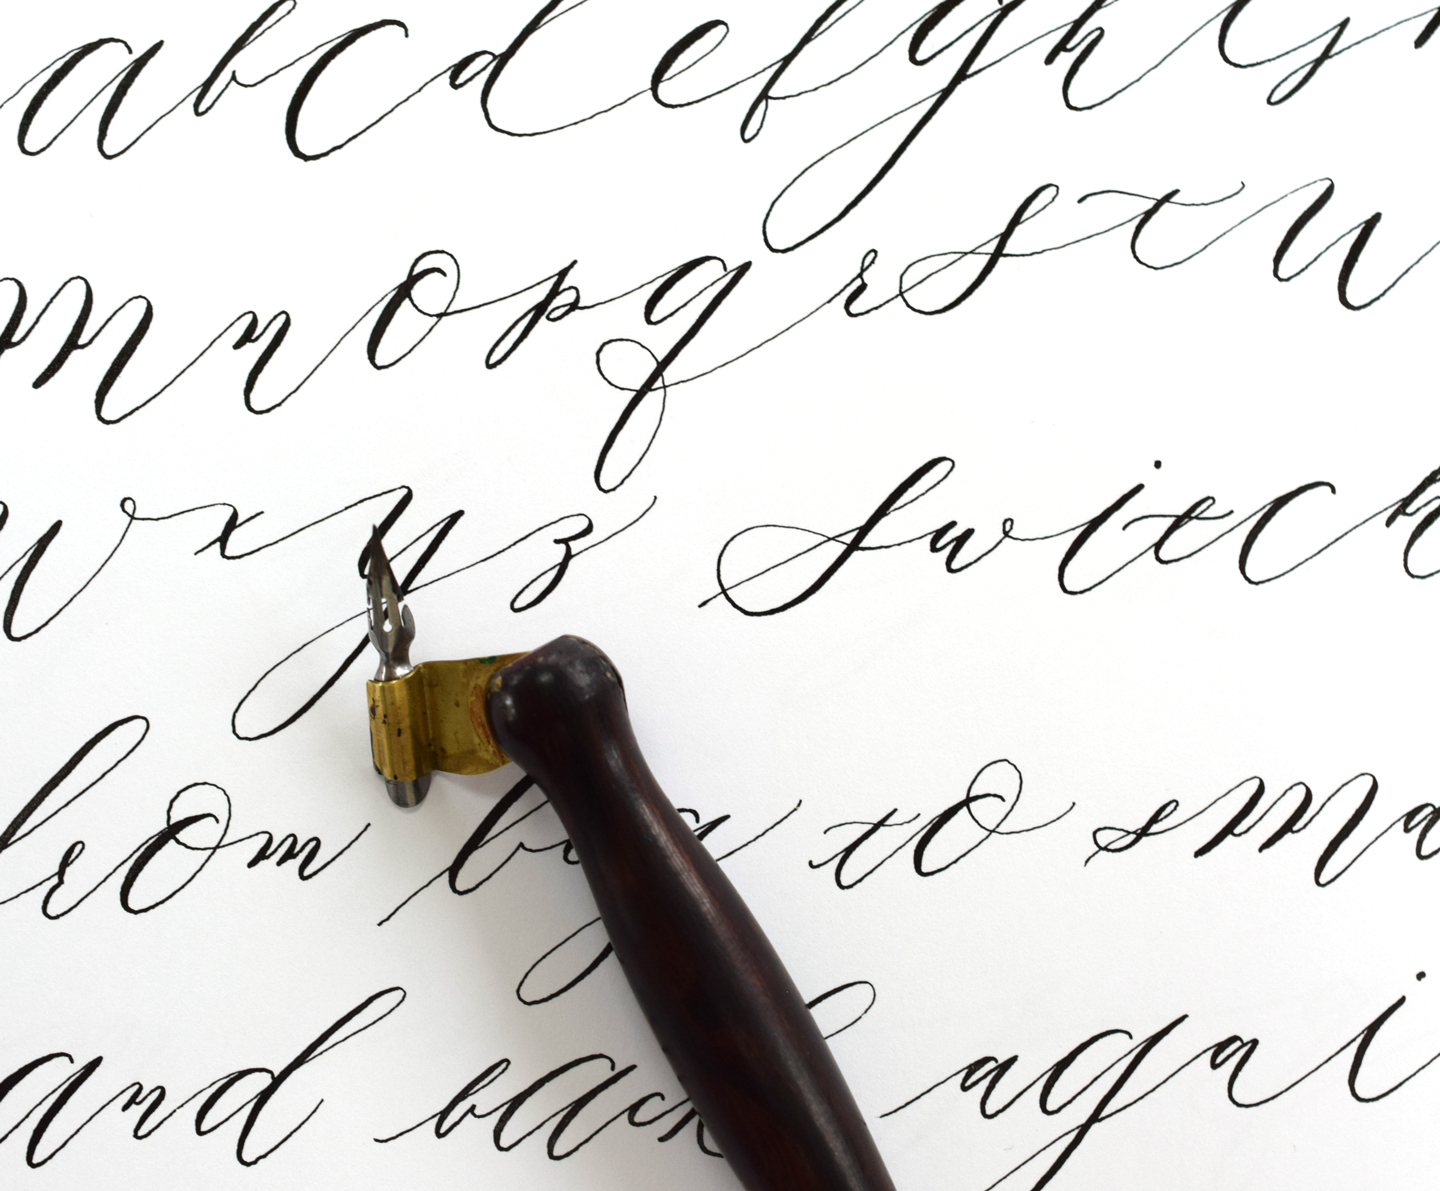 abcdefghijk
mnopqrstu
wxyz switch
from big to sma
and back agai